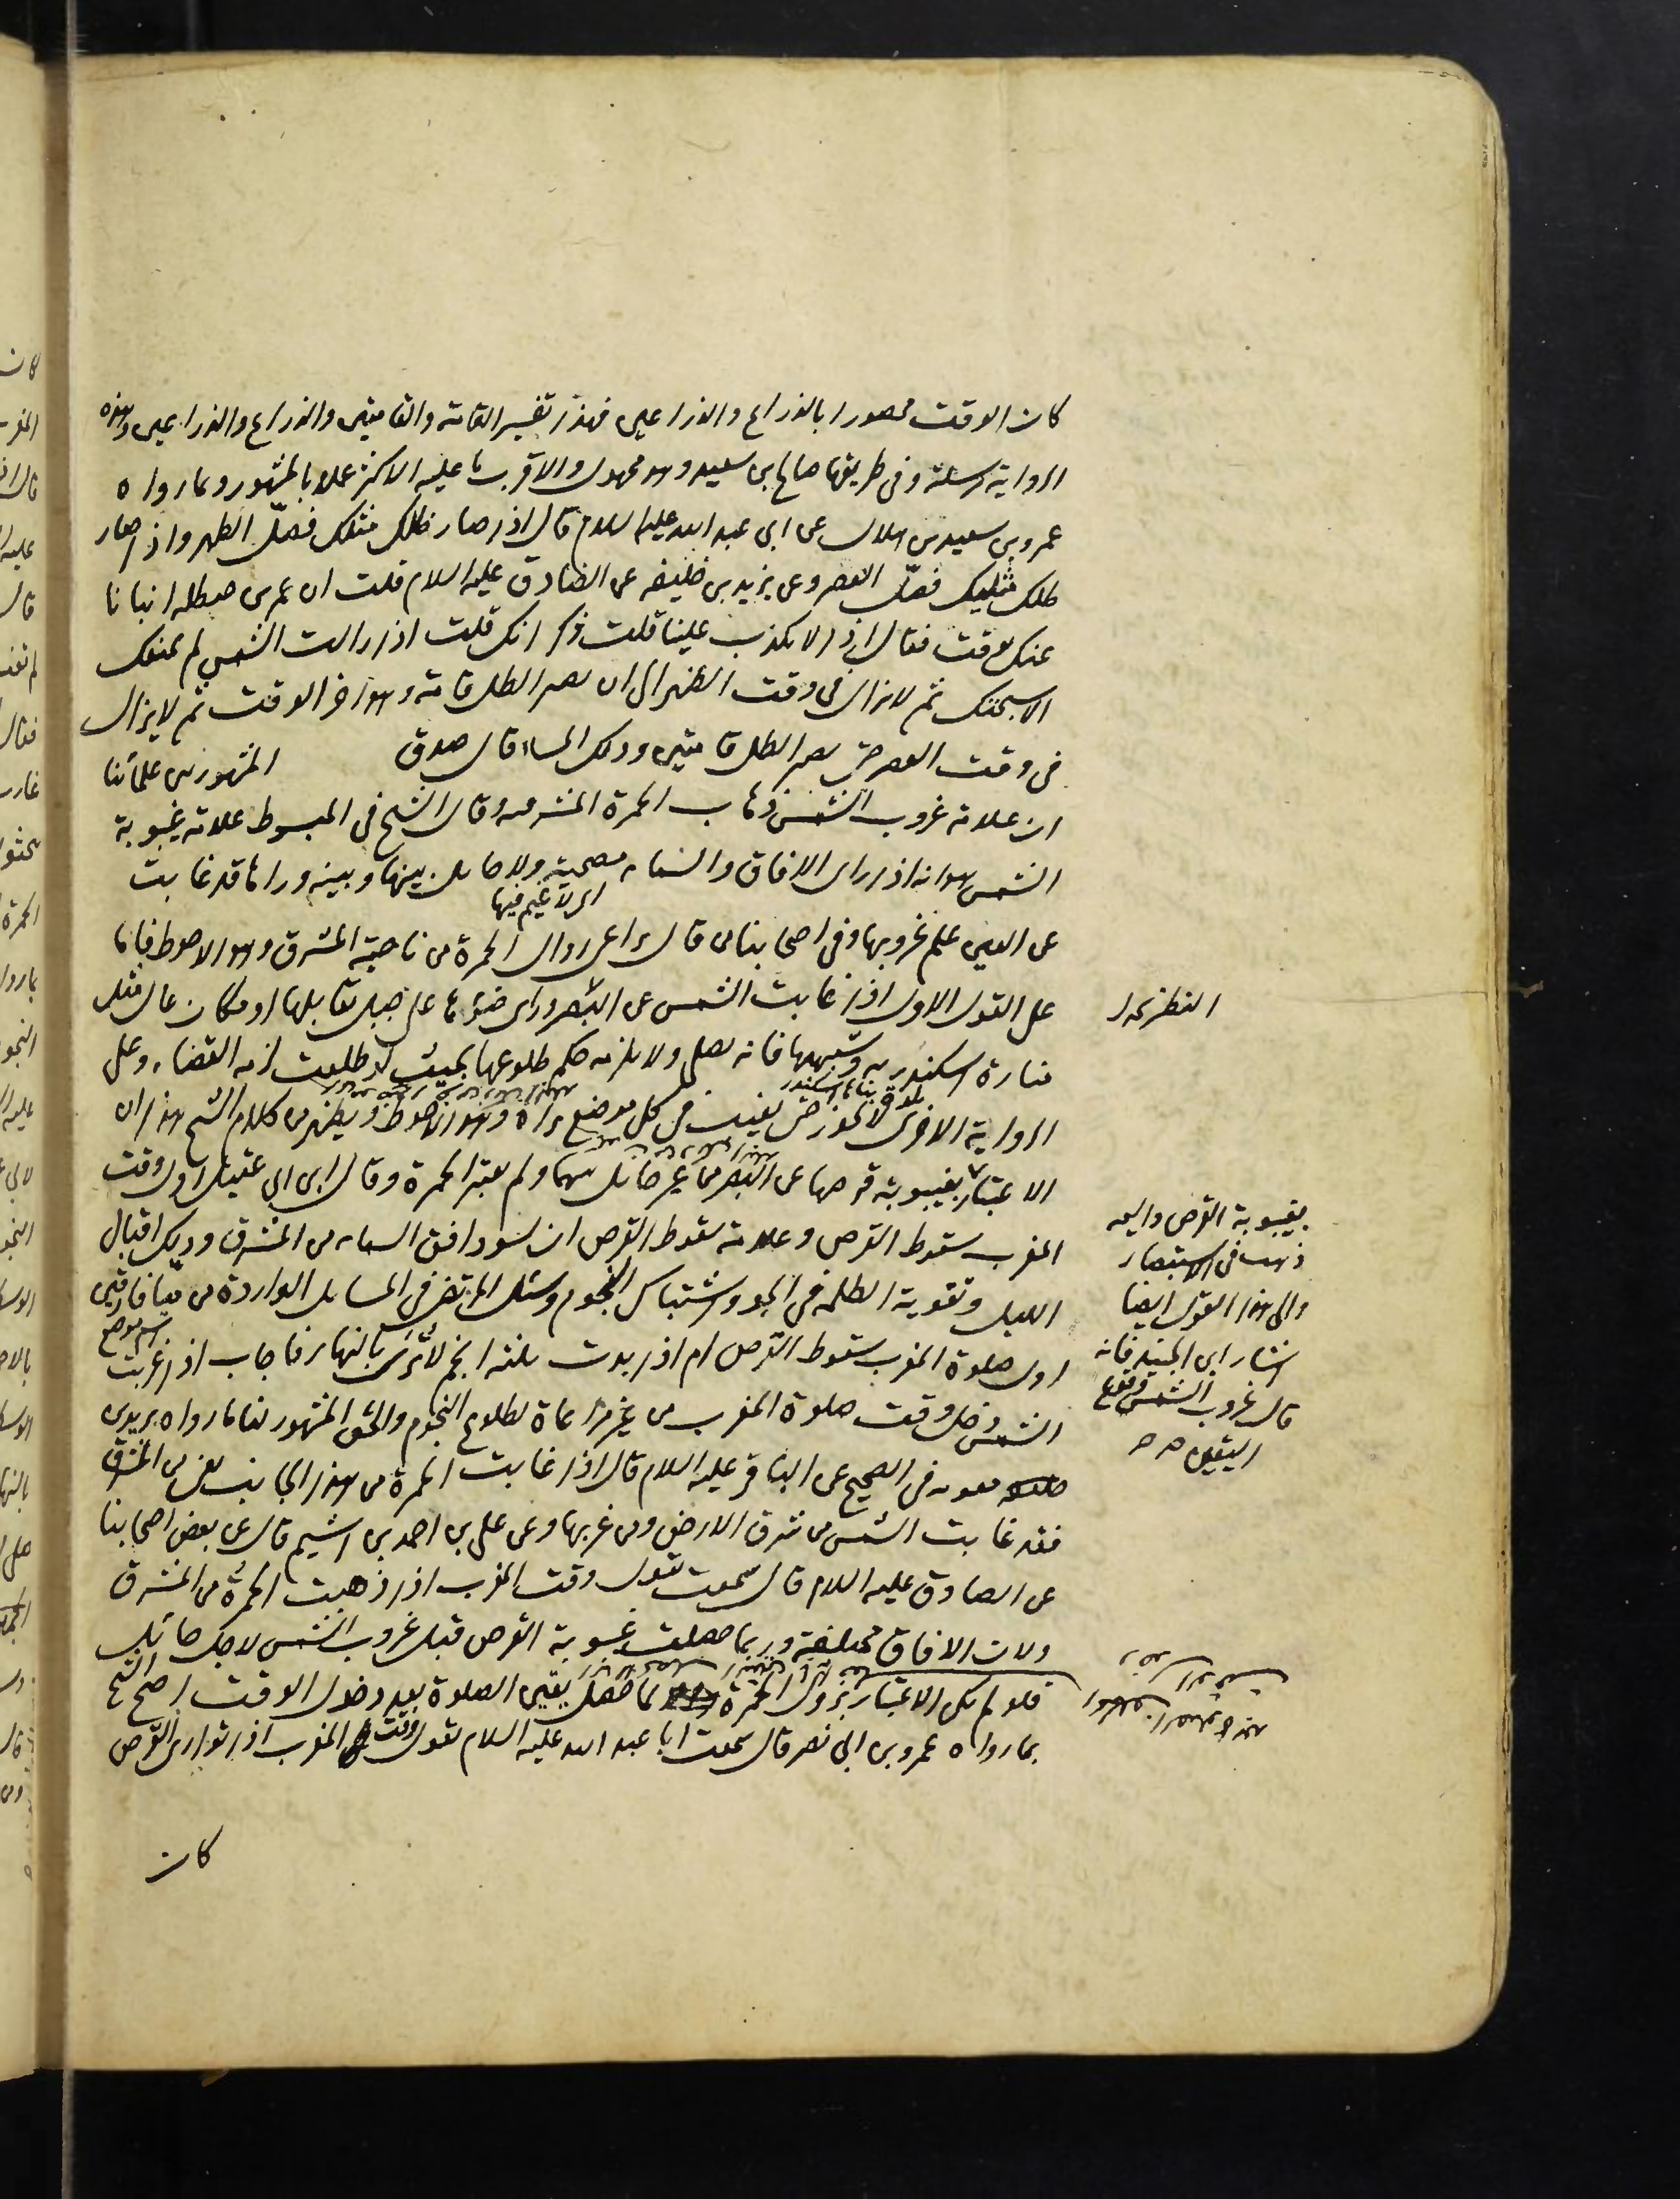 كان الوقت محصورا بالذراع والذراعين فهذا تفسير القامة والقامتين والذراع والذراعين وهذه
الرواية مرسلة وفى طريقها صالح بن سعيد وهو مجهول والاقرب ما عليه الاكثر عملا بالمشهور وبما رواه
عمرو بن سعيد بن هلال عن ابى عبد الله عليه السلام قال اذا صار ظلك مثلك فصلّ الظهر واذا صار
ظلك مثليك فصلّ العصر وعن يزيد بن خليفه عن الصادق عليه السلام قلت ان عمر بن حنظله انبانا
عنك بوقت فقال اذا لا يكذب علينا قلت ذكر انك قلت اذا زالت الشمس لم يمنعك
الا سبحتك ثم لا تزال فى وقت الظهر الى ان يصير الظل قامة وهو اخر الوقت ثم لا يزال
فى وقت العصر حتى يصير الظل قامتين وذلك المساء قال صدق المشهور بين علمائنا
ان علامة غروب الشمس ذهاب الحمرة المشرقيه وقال الشيخ فى المبسوط علامة غيبوبة
الشمس هو انه اذا راى الافاق والسماء مصحية ولا حايل بينها وبينه وراها قد غابت
اى لا غيم فيها
عن العين علم غروبها وفى اصحابنا من قال يراعى زوال الحمرة من ناحية المشرق وهو الاحوط فاما
على القول الاول اذا غابت الشمس عن البصر وراى ضوئها على جبل يقابلها او مكان عال مثل
النظر بحدا
منارة اسكندريه وشبهها فانه يصلى ولا يلزمه حكم طلوعها بحيث لو طلعت لزمه القضاء وعلى
الرواية الاخرى لا يجوز حتى يغيب فى كل موضع يراه وهو الاحوط ويظهر من كلام الشيخ هذا ان
الاعتبار بغيبوبة قرصها عن البصر مع غير حايل بينهما ولم يعتبر الحمرة وقال ابن ابى عقيل اول وقت
المغرب سقوط القرص وعلامة سقوط القرص ان يسود افق السماء من المشرق وذلك اقبال
الليل وتقوية الظلمه فى الجو واشتباك النجوم وسئل المرتضى فى المسايل الواردة من ميافارقين
اسم موضع
اول صلوة المغرب سقوط القرص ام اذا بدت ثلثه انجم لا تُرى بالنهار فاجاب اذا غربت
الشمس دخل وقت صلوة المغرب من غير مراعاة لطلوع النجوم والحق المشهور لنا ما رواه بريد بن
بغيبوبة القرص واليه
ذهب فى الاستبصار
والى هذا القول ايضا
اشار ابن الجنيد فانه
قال غروب الشمس وقوع
اليقين
معويه فى الصحيح عن الباقر عليه السلام قال اذا غابت الحمرة من هذا الجانب يعنى من المشرق
فقد غابت الشمس من شرق الارض ومن غربها وعن على بن احمد بن اشيم قال عن بعض اصحابنا
عن الصادق عليه السلام قال سمعت يقول وقت المغرب اذا ذهبت الحمرة من المشرق
ولان الافاق مختلفة وربما حصلت غيبوبة القرص قبل غروب الشمس لاجل حائل
فلو لم يكن الاعتبار بزوال الحمرة لما حصل يقين الصلوة بعد دخول الوقت احتج الشيخ
بما رواه عمرو بن ابى نصر قال سمعت ابا عبد الله عليه السلام يقول وقت المغرب اذا توارى القرص
كان